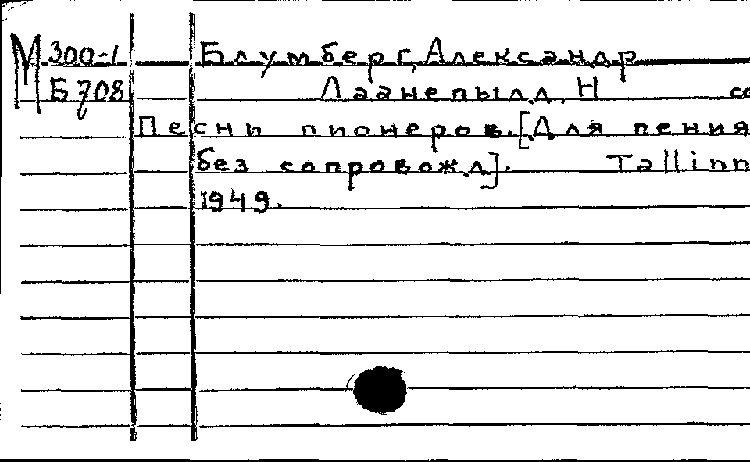 М 300-1 Блумберг, Александр
Б708 Лаанепылд, Н сс
Песни пионеров. [Для пения
без сопровожд]. Tallinn
1949.